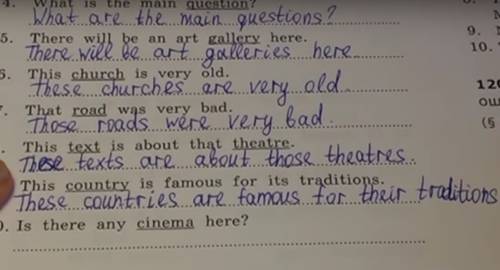 4. What is the main question?
What are the main questions?
5. There will be an art gallery here.
There will be art galleries here
6. This church is very old.
These churches are very old.
7. That road was very bad.
Those roads were very bad.
This text is about that theatre.
These texts are about those theatres.
This country is famous for its traditions.
These countries are famous for their traditions
0. Is there any cinema here?
9.
10.
120
(§